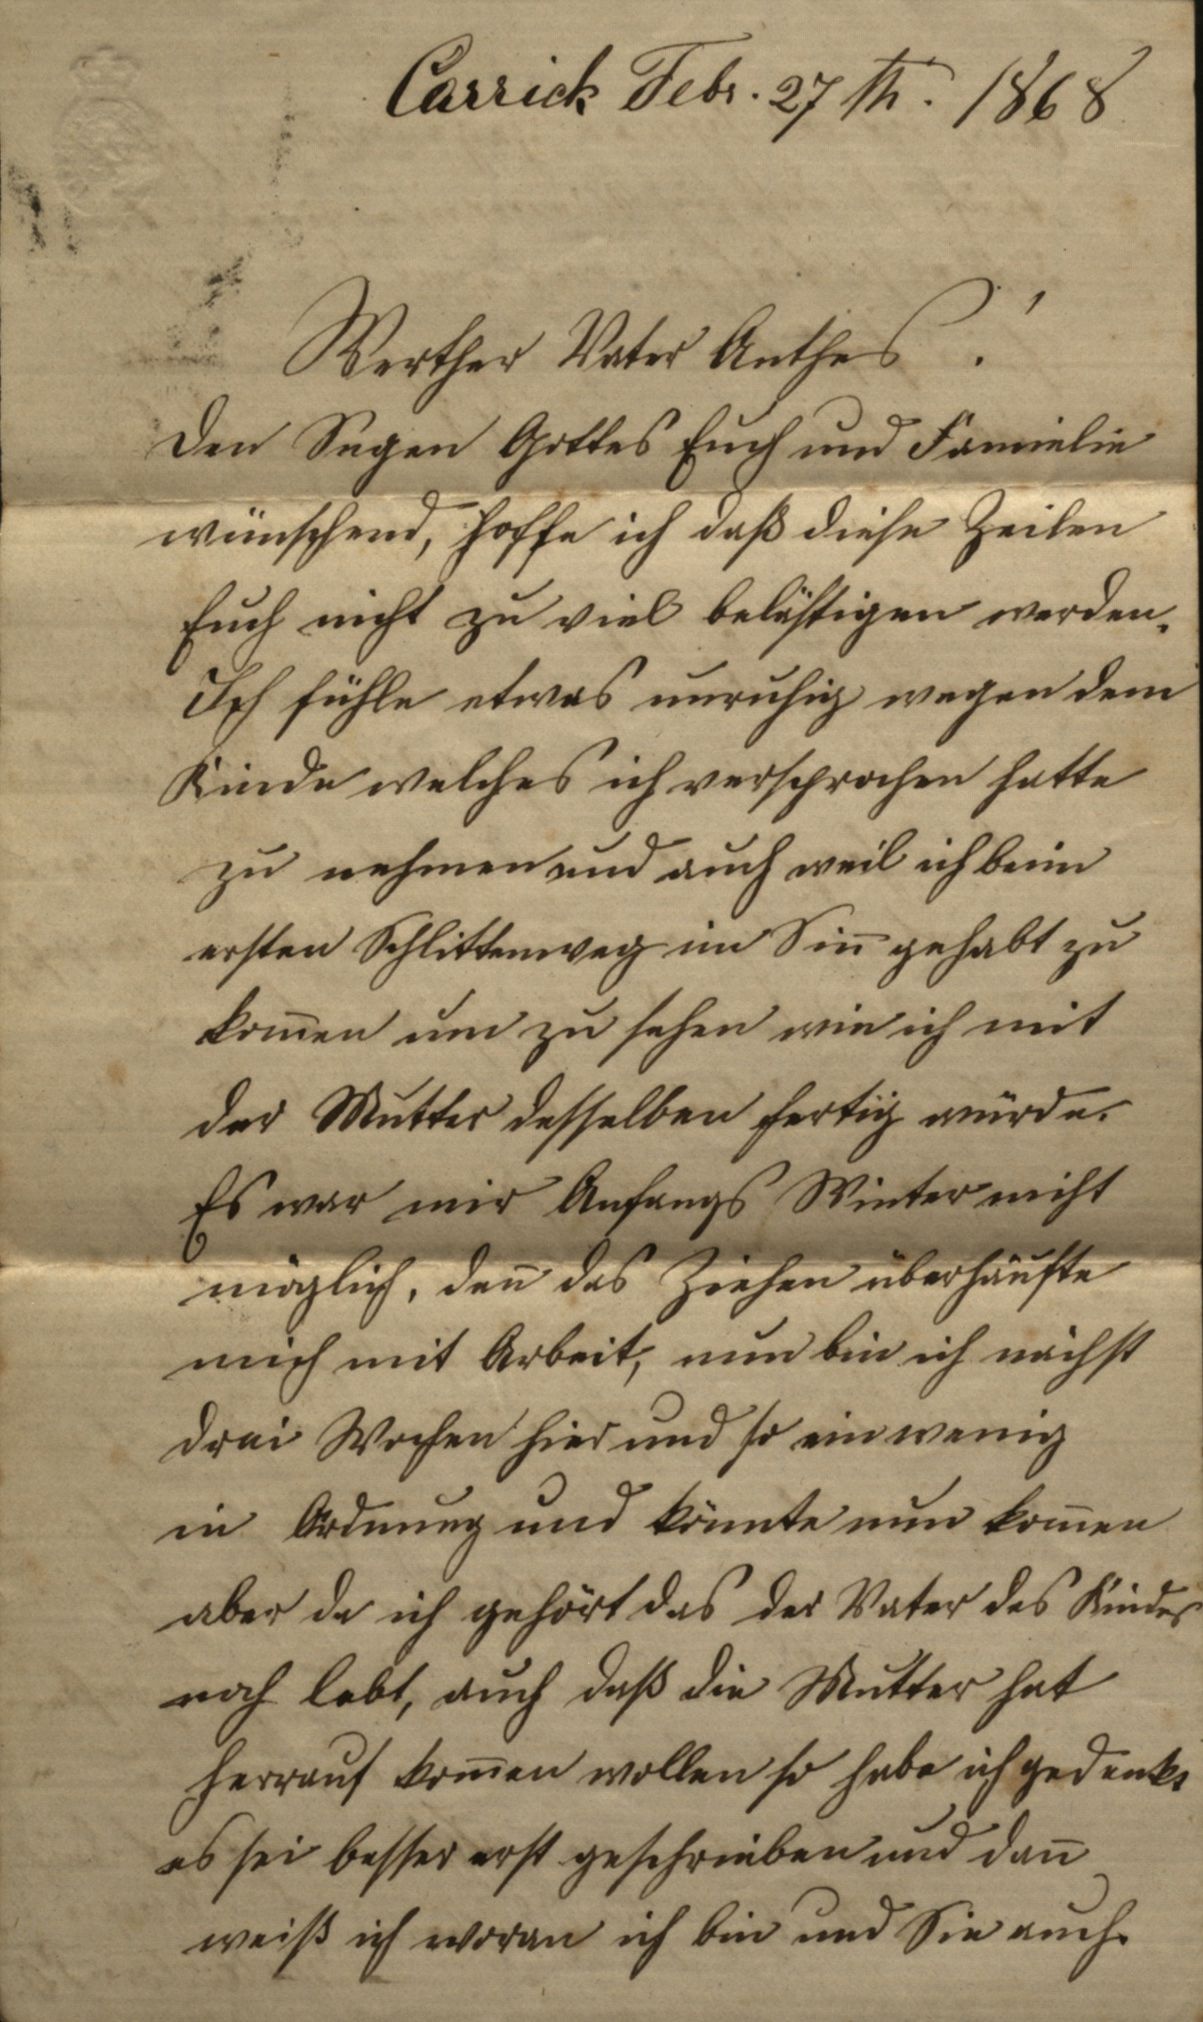 Carrick Febr. 27th. 1868
Werther Vater Anthes!
Den Segen Gottes Euch und Familie
wünschend, hoffe ich daß diese Zeilen
Euch nicht zu viel belästigen werden.
Ich fühle etwas unruhig wegen dem
Kinde welches ich versprochen hatte
zu nehmen und auch weil ich beim
ersten Schlittenweg im Sin̄ gehabt zu
kom̄en um zu sehen wie ich mit
der Mutter desselben fertig würde.
Es war mir Anfangs Winter nicht
möglich, den̄ das Ziehen überhäufte
mich mit Arbeit, nun bin ich nächst
drei Wochen hier und so ein wenig
in Ordnung und könnte nun kom̄en
aber da ich gehört das der Vater des Kindes
noch lebt, auch daß die Mutter hat
herrauf kom̄en wollen so habe ich gedenkt
es sei besser erst geschrieben und dan̄
weiß ich woran ich bin und Sie auch.